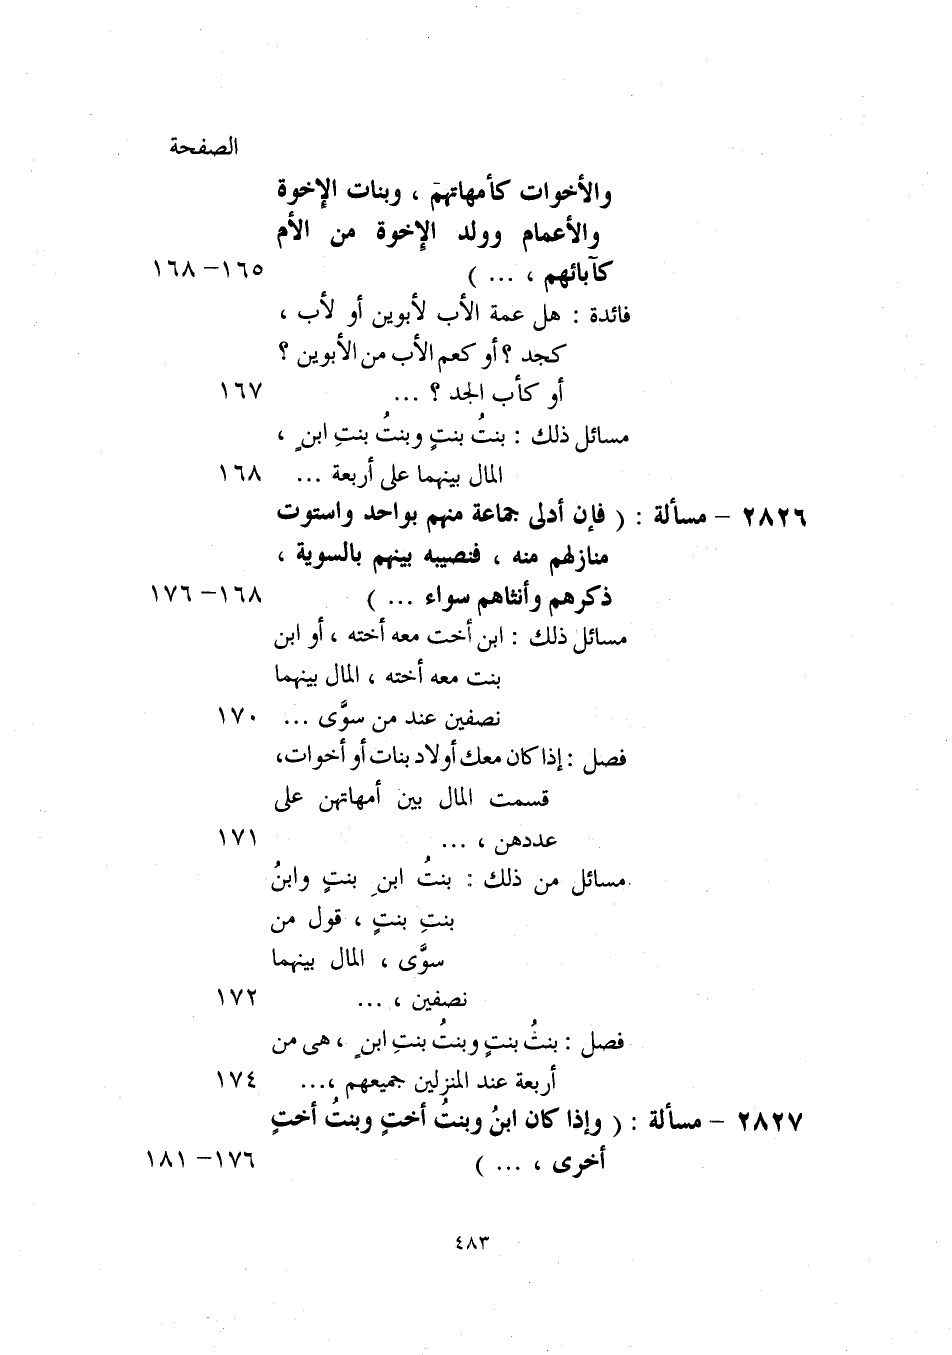 الصفحة
والأخوات كأمهاتهم ، وبنات الإخوة
والأعمام وولد الإخوة من الأم
كآبائهم ، ... ) ١٦٥ – ١٦٨
فائدة : هل عمة الأب لأبوين أو لأب ،
كجد ؟ أو كعم الأب من الأبوين ؟
أو كأب الجد ؟ ... ١٦٧
مسائل ذلك : بنتُ بنتٍ وبنتُ بنتِ ابنٍ ،
المال بينهما على أربعة ... ١٦٨
٢٨٢٦ – مسألة : ( فإن أدلى جماعة منهم بواحد واستوت
منازلهم منه ، فنصيبه بينهم بالسوية ،
ذكرهم وأنثاهم سواء ... ) ١٦٨ – ١٧٦
مسائل ذلك : ابن أخت معه أخته ، أو ابن
بنت معه أخته ، المال بينهما
نصفين عند من سوَّى ... ١٧٠
فصل : إذا كان معك أولاد بنات أو أخوات،
قسمت المال بين أمهاتهن على
عددهن ، ... ١٧١
مسائل من ذلك : بنتُ ابنِ بنتٍ وابنُ
بنتِ بنتٍ ، قول من
سوَّى ، المال بينهما
نصفين ، ... ١٧٢
فصل : بنتُ بنتٍ وبنتُ بنتِ ابنٍ ، هى من
أربعة عند المنزلين جميعهم ،... ١٧٤
٢٨٢٧ – مسألة : ( وإذا كان ابنُ وبنتُ أختٍ وبنتُ أختٍ
أخرى ، ... ) ١٧٦ – ١٨١
٤٨٣